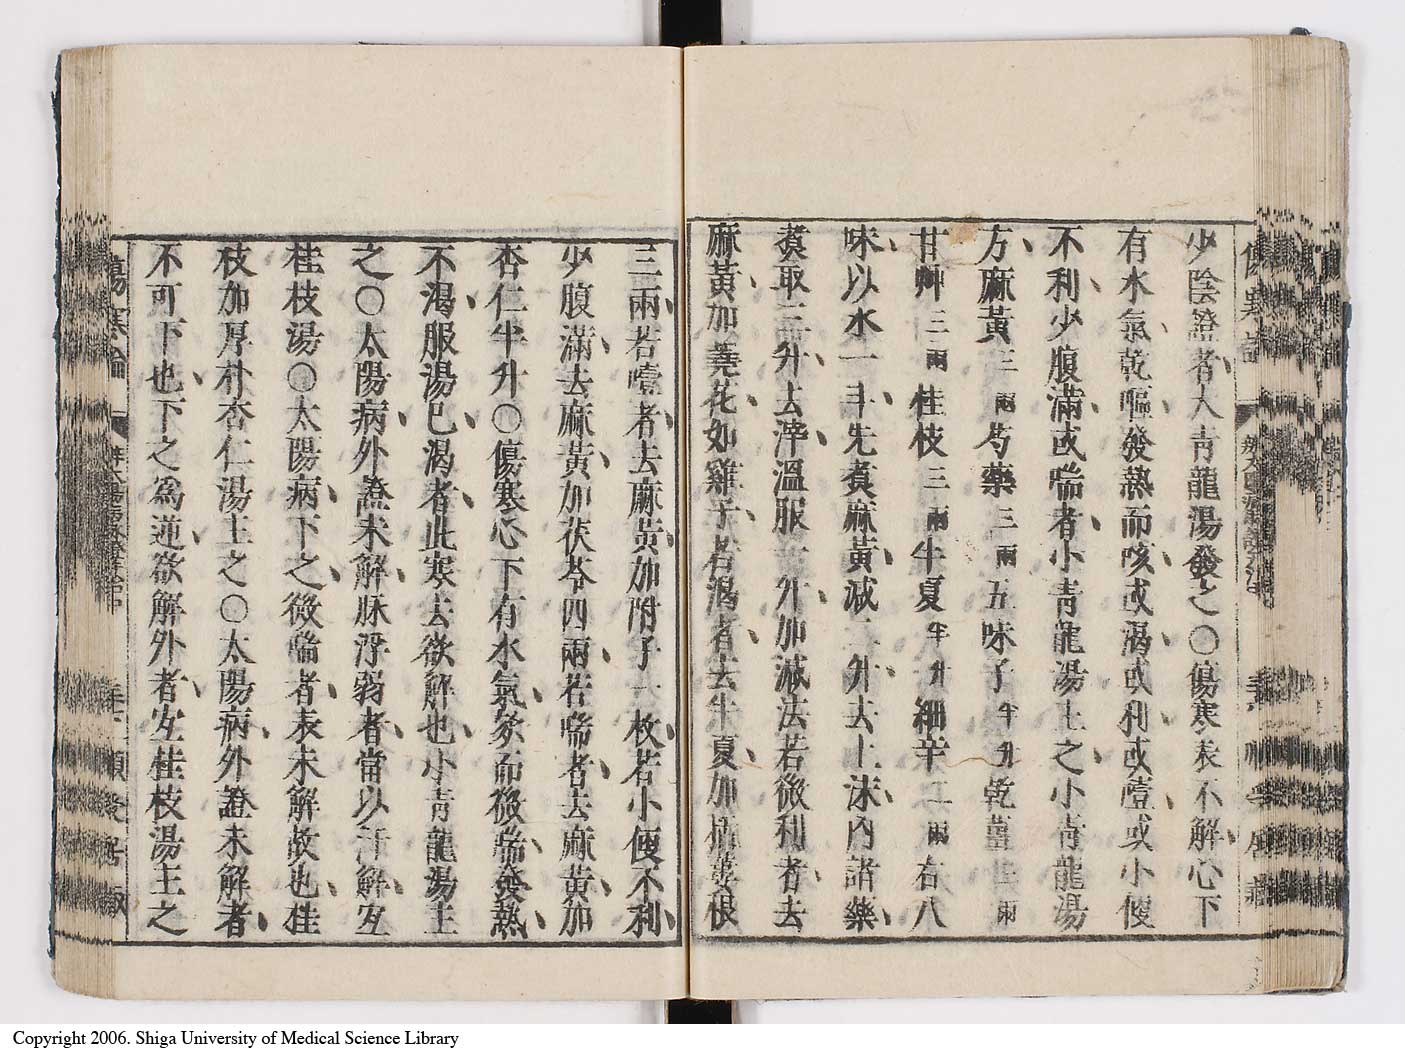 少陰證者大靑龍湯發之〇傷寒表不解心下
有水氣乾嘔發熱而咳或渴或利或噎或小便
不利少腹滿或喘者小靑龍湯主之小靑龍湯
方麻黃三兩芍藥三兩五味子半升乾薑三兩
甘艸三兩桂枝三兩半夏半升細辛三兩右八
味以水一斗先煑麻黃減二升去上沫內諸藥
煑取三升去滓溫服一升加減法若微利者去
麻黃加蕘花如雞子若渴者去半夏加栝蔞根
三兩若噎者去麻黃加附子一枚若小便不利
少腹滿去麻黃加茯苓四兩若喘者去麻黃加
杏仁半升〇傷寒心下有水氣欬而微喘發熱
不渴服湯已渴者此寒去欲解也小靑龍湯主
之〇太陽病外證未解脉浮弱者當以汗解宜
桂枝湯〇太陽病下之微喘者表未解故也桂
枝加厚朴杏仁湯主之〇太陽病外證未解者
不可下也下之爲逆欲解外者宜桂枝湯主之
傷寒論
Copyright 2006. Shiga University of Medical Science Library